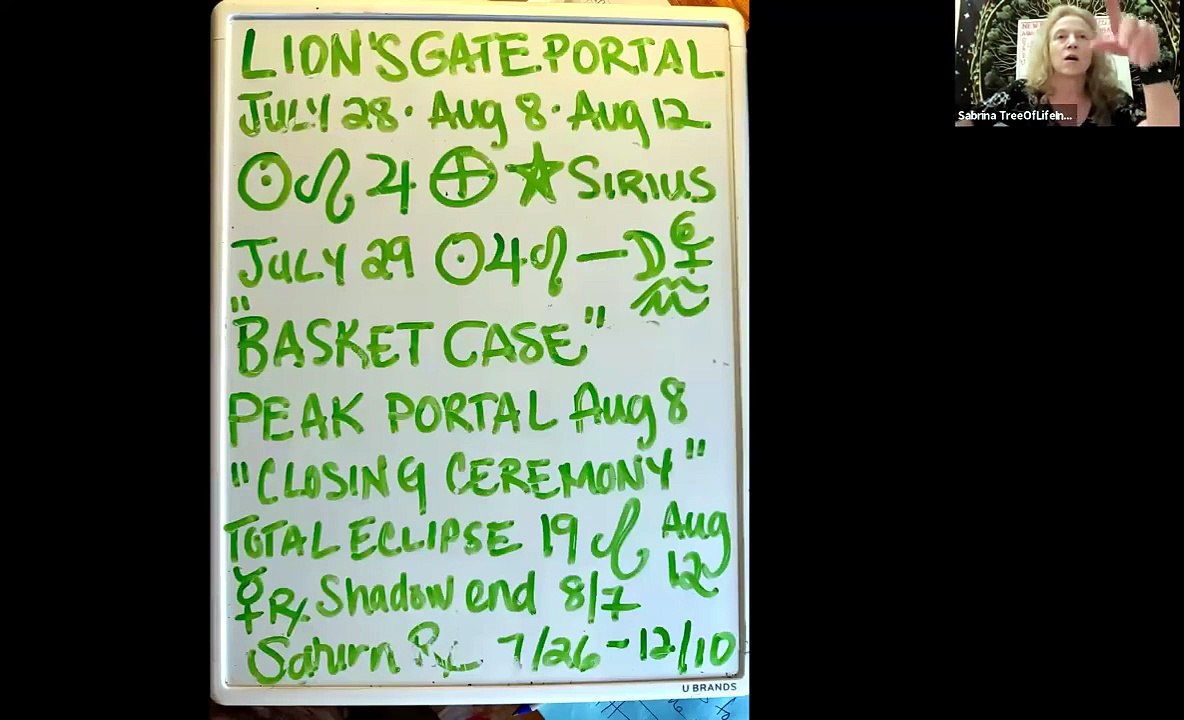 LION'S GATE PORTAL
JULY 28 · Aug 8 · Aug 12
☉ ♌ ♃ ⊕ ★ SIRIUS
JULY 29 ☉ ♃ ♌ —
"BASKET CASE"
PEAK PORTAL Aug 8
"CLOSING CEREMONY"
TOTAL ECLIPSE 19 ♌ Aug 12
☿ Rx Shadow end 8/7
Saturn Rx 7/26 - 12/10
U BRANDS
Sabrina TreeOfLifeIn...